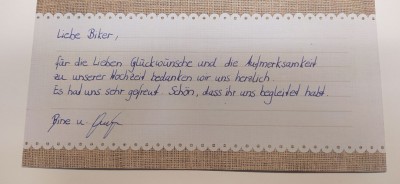 Liebe Biker,
für die Lieben Glückwünsche und die Aufmerksamkeit
zu unserer Hochzeit bedanken wir uns herzlich.
Es hat uns sehr gefreut. Schön, dass ihr uns begleitet habt.
Bine u.